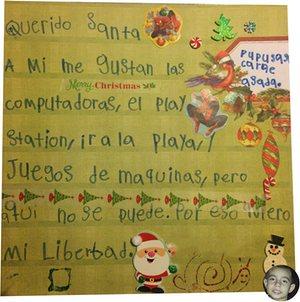 Querido Santa
A mi me gustan las
Merry Christmas
computadoras, el play
station, ir a la playa, /
Juegos de maquinas, pero
aqui no se puede. Por eso quiero
Mi Libertad.
pupusas,
carne
asada.